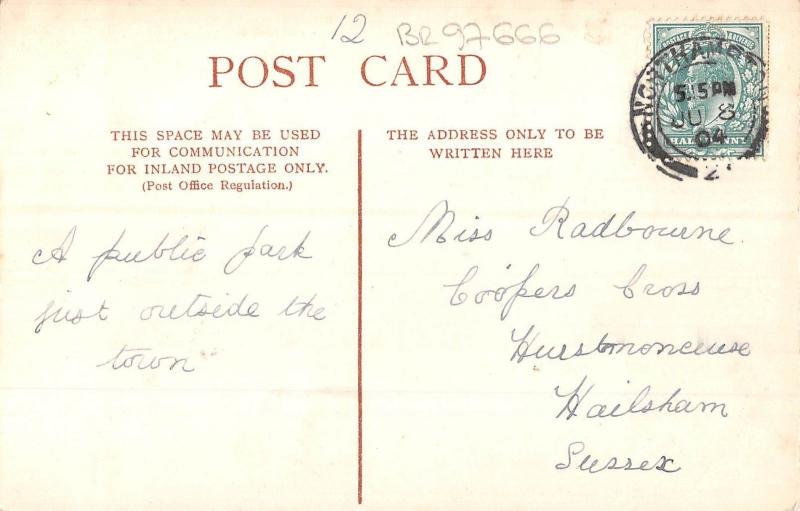 12 BR97666
POST CARD
THIS SPACE MAY BE USED
FOR COMMUNICATION
FOR INLAND POSTAGE ONLY.
(Post Office Regulation.)
A public park
just outside the
town
THE ADDRESS ONLY TO BE
WRITTEN HERE
POSTAGE & REVENUE
NORTHAMPTON
5.15 PM
JU 8
04
HALFPENNY
Miss Radbourne
Coopers Cross
Hurstmonceuse
Hailsham
Sussex